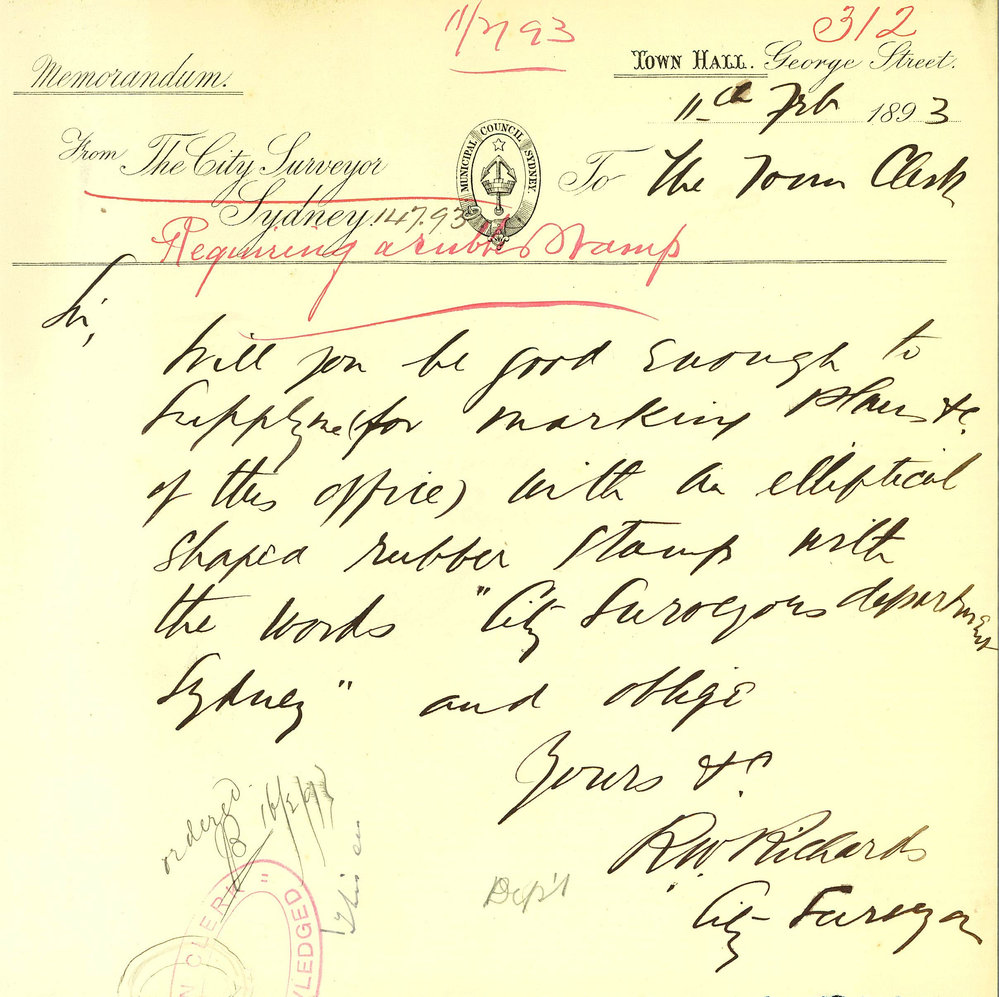 11/2/93
312
Memorandum.
TOWN HALL. George Street.
11th Feb 1893
From The City Surveyor
MUNICIPAL COUNCIL SYDNEY
To The Town Clerk
Sydney. 147.93
Requiring a rubber Stamp
Sir,
Will you be good enough to
Supply me (for marking plans &c.
of this office) with an elliptical
shaped rubber stamp with
the words "City Surveyors department
Sydney" and oblige
Yours &c
R W Richards
City Surveyor
ordered
16/2/93
Dep't
N CLERK
WLEDGED